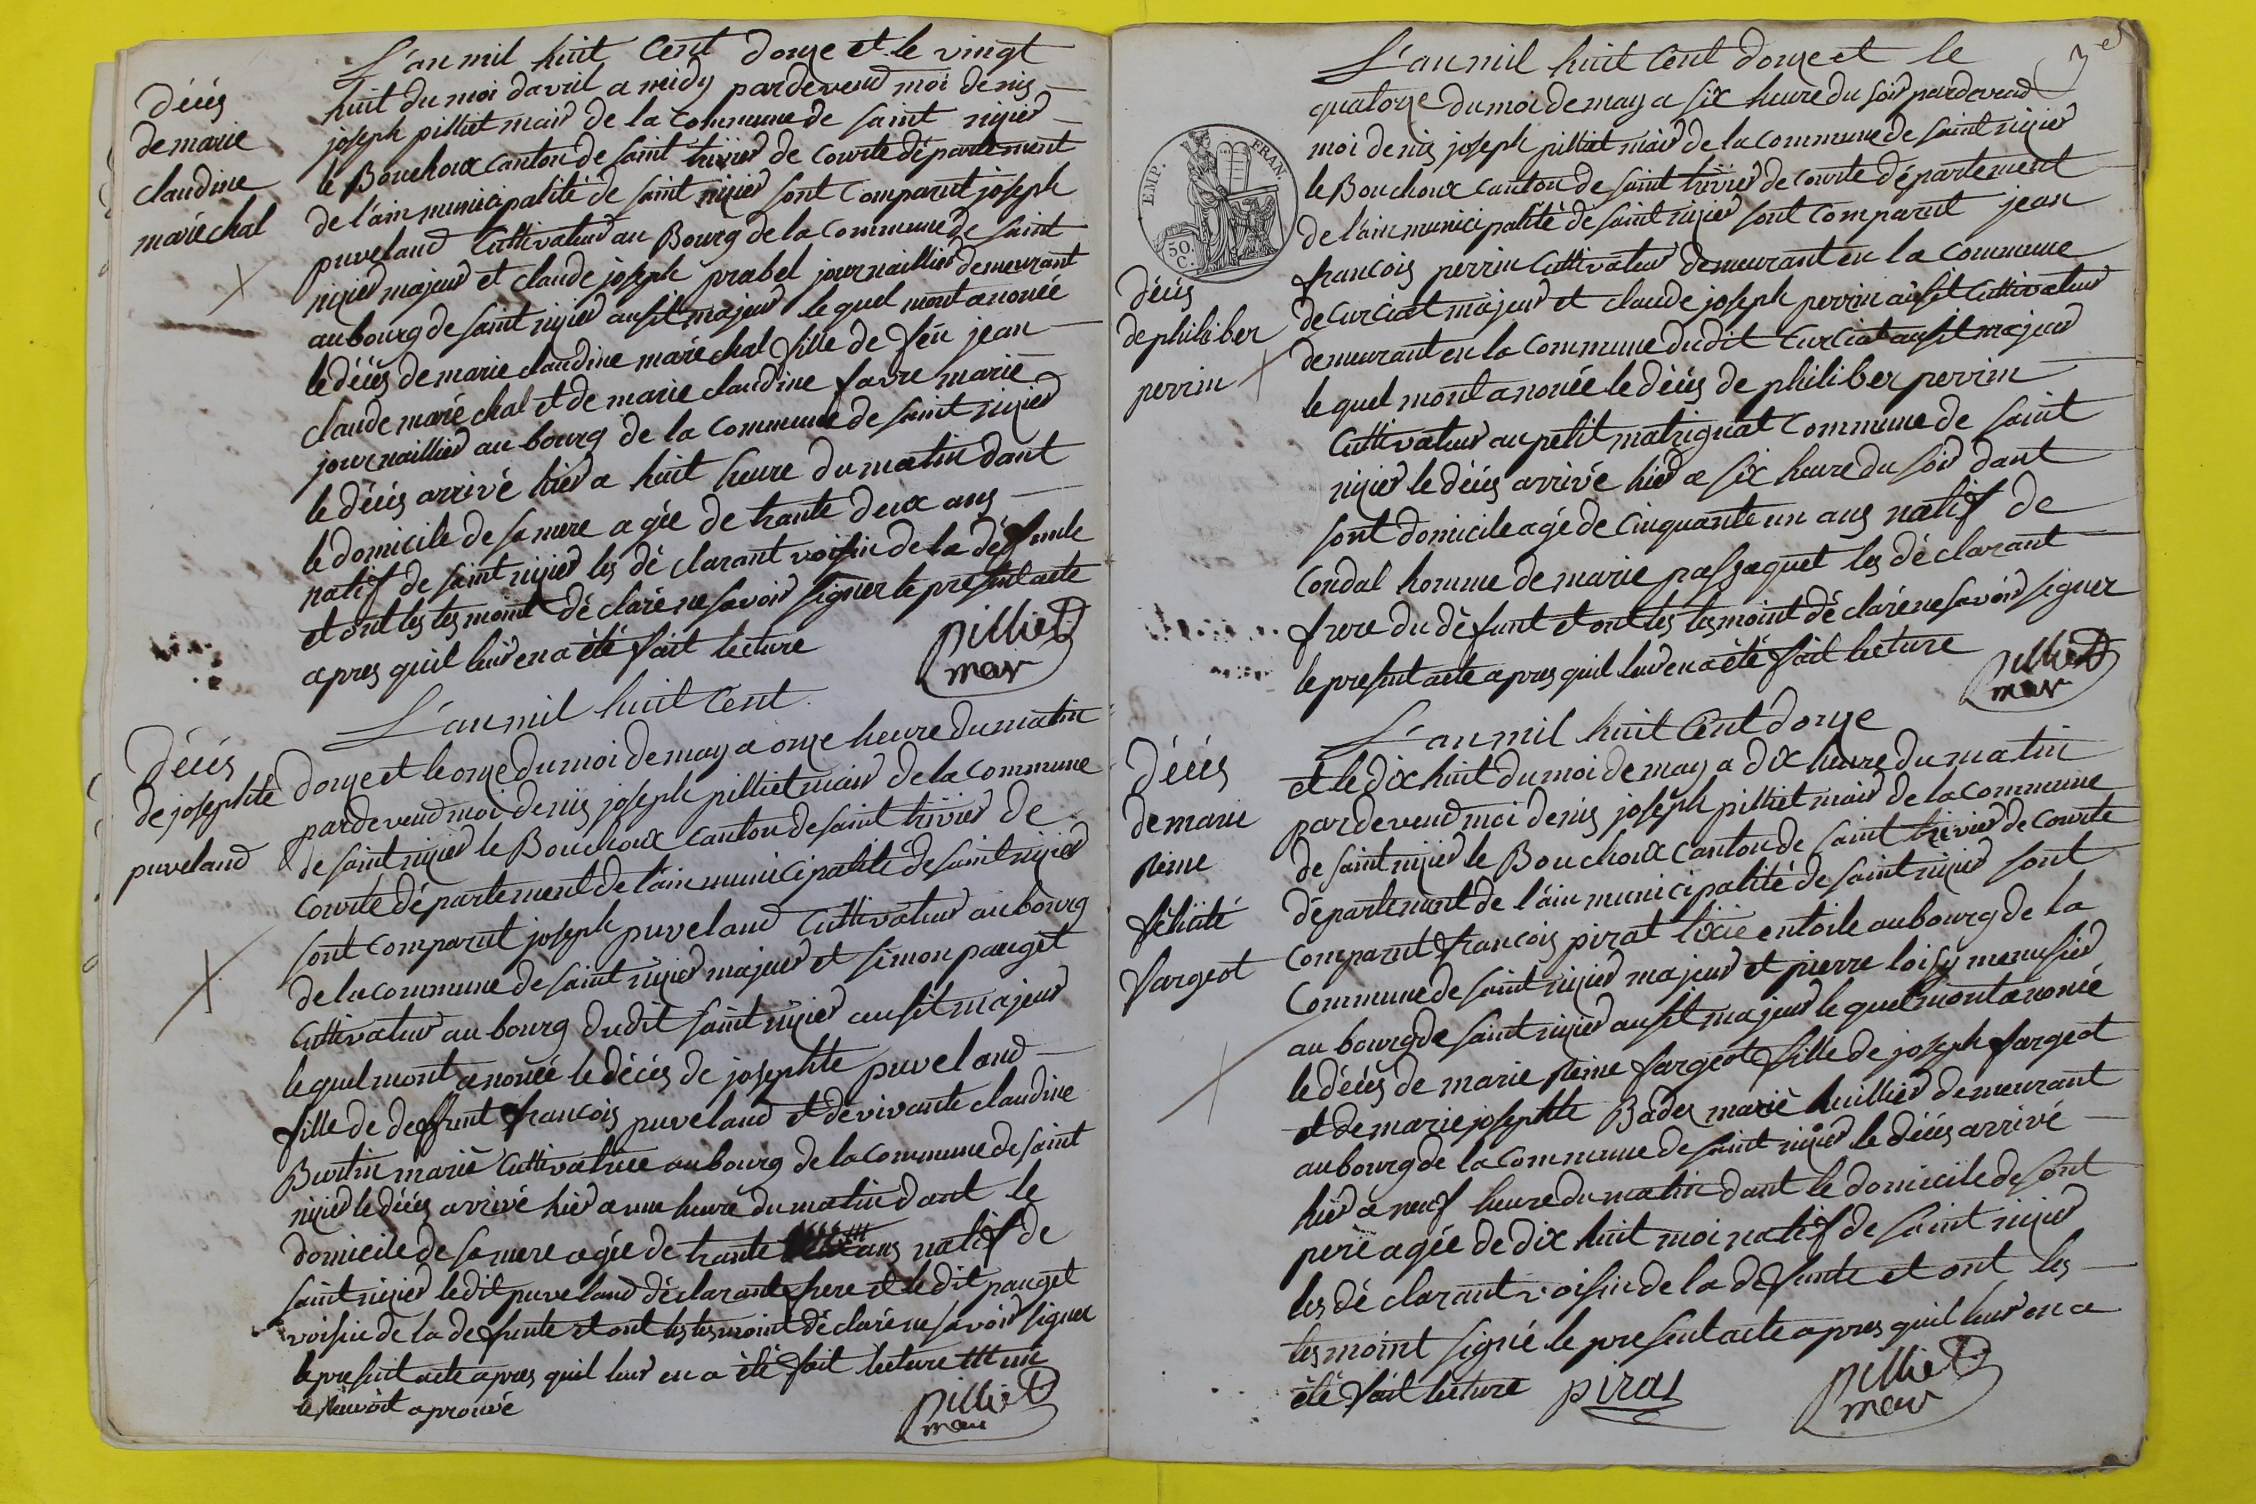 L'an mil huit Cent douze et le vingt
huit du moi davril a midy pardevend moi denis
joseph pilliet mair de la Commune de saint nizier
le Bouchoux canton de saint trivier de Courte département
de l'ain municipalité de saint nizier sont Comparut joseph
puveland Cultivateur au Bourg de la Commune de saint
nizier majeur et claude joseph prabel journaillier demeurant
au bourg de saint nizier ausit majeur le quel mont anonée
le décés de marie claudine maréchal fille de feu jean
claude maréchal et de marie claudine favre marié
journaillier au bourg de la Commune de saint nizier
le décés arrivé hier a huit heure du matin dant
le domicile de sa mere agée de trante deux ans
natif de saint nizier les déclarant voisin de la défunte
et ont les tesmoint déclaré ne savoir signer le présent acte
apres quil leur en a été fait lecture
pilliet
mair
décés
de marie
claudine
maréchal
L'an mil huit Cent
douze et le onze du moi de may a onze heure du matin
pardevend moi denis joseph pilliet mair de la Commune
de saint nizier le Bouchoux Canton de saint trivier de
Courte département de l'ain municipalité de saint nizier
sont Comparut joseph puveland Cultivateur au bourg
de la commune de saint nizier majeur et simon pauget
Cultivateur au bourg dudit saint nizier ausit majeur
le quel mont anonée le décés de josephte puveland
fille de deffunt francois puveland et de vivante claudine
Burtin marié Cultivatrice au bourg de la Commune de saint
nizier le décés arrivé hier a une heure du matin dant le
domicile de sa mere agée de trante ans natif de
saint nizier ledit puveland déclarant frere et ledit pauget
voisin de la defunte et ont les tesmoint déclaré ne savoir signer
le présent acte apres quil leur en a été fait lecture
aprouvé
pilliet
mair
décés
de josephte
puveland
3
L'an mil huit Cent douze et le
quatorze du moi de may a six heure du soir pardevend
moi denis joseph pilliet mair de la Commune de saint nizier
le Bouchoux Canton de saint trivier de Courte département
de l'ain municipalité de saint nizier sont Comparut jean
francois perrin Cultivateur demeurant en la Commune
de Curciat majeur et claude joseph perrin ausit Cultivateur
demeurant en la Commune dudit Curciat ausit majeur
le quel mont anonée le décés de philiber perrin
Cultivateur au petit matrignat Commune de saint
nizier le décés arrivé hier a six heure du soir dant
sont domicile agé de Cinquante un ans natif de
Condal homme de marie passaquet les déclarant
frere du défunt et ont les tesmoint déclaré ne savoir signer
le présent acte apres quil leur en a été fait lecture
pilliet
mair
EMP. FRAN.
50.
C.
décés
de philiber
perrin
L'an mil huit Cent douze
et le dix huit du moi de may a dix heure du matin
pardevend moi denis joseph pilliet mair de la Commune
de saint nizier le Bouchoux Canton de saint trivier de Courte
département de l'ain municipalité de saint nizier sont
Comparut francois pirat tixie entoile au bourg de la
Commune de saint nizier majeur et pierre loisy menusier
au bourg de saint nizier ausit majeur le quel mont anonée
le décés de marie reine fargeot fille de joseph fargeot
et de marie josephte Badez marié huillier demeurant
au bourg de la Commune de saint nizier le décés arrivé
hier a neuf heure du matin dant le domicile de sont
pere agée de dix huit moi natif de saint nizier
les déclarant voisin de la defunte et ont les
tesmoint signé le présent acte apres quil leur en a
été fait lecture pirat
pilliet
mair
décés
de marie
reine
félicité
fargeot